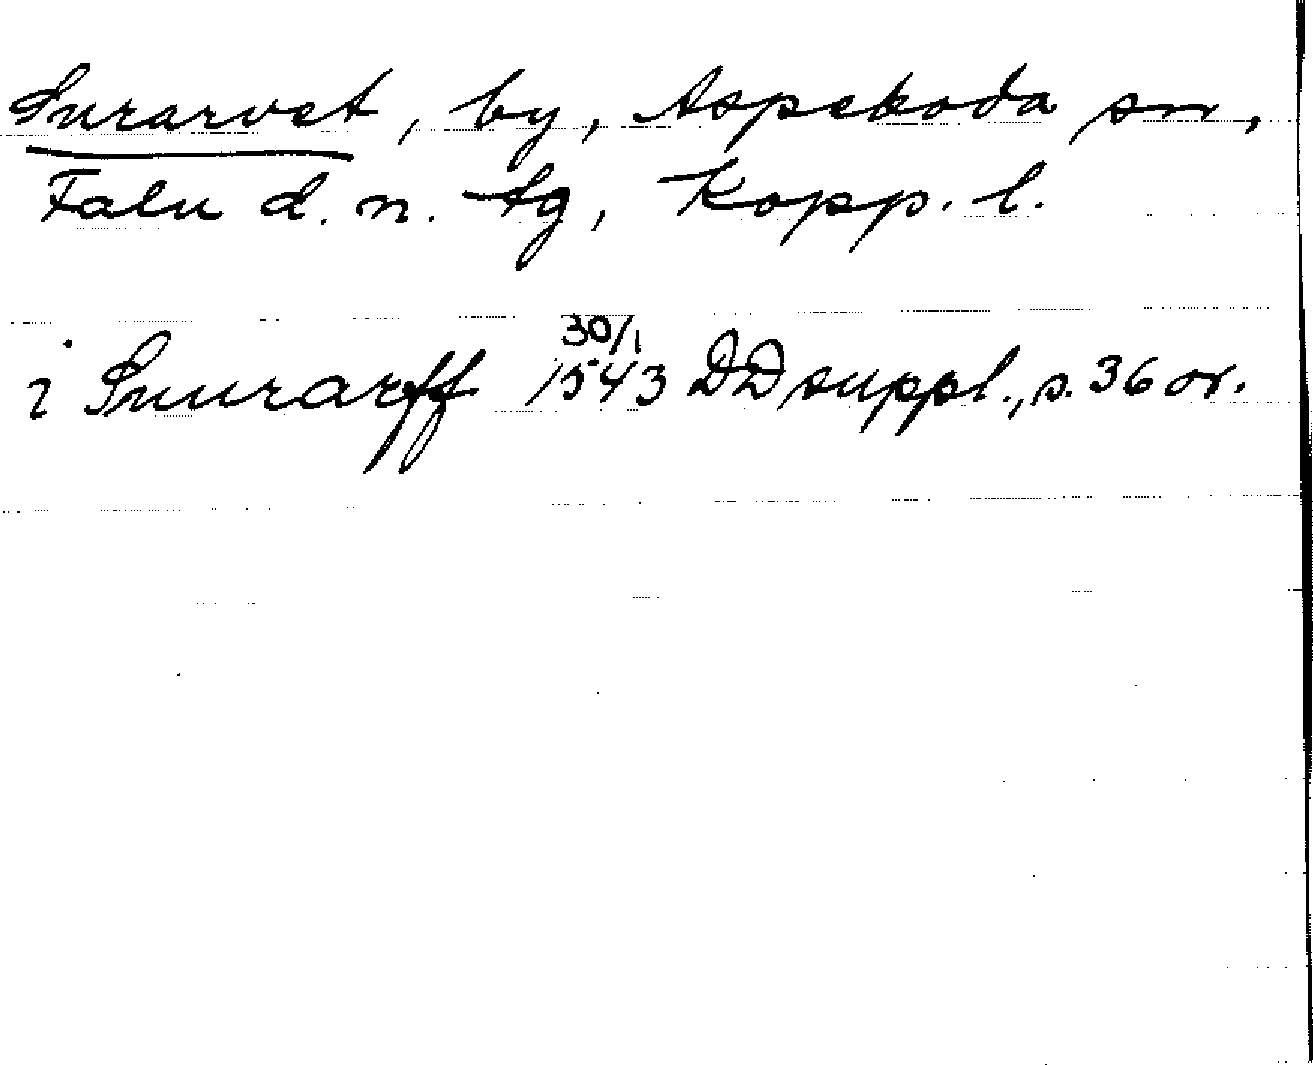 Snrarvet, by, Aspeboda sn,
Falu d. n. tg, Kopp. l.
30/1
i Snurarff 1543 DD suppl., s. 36 or.